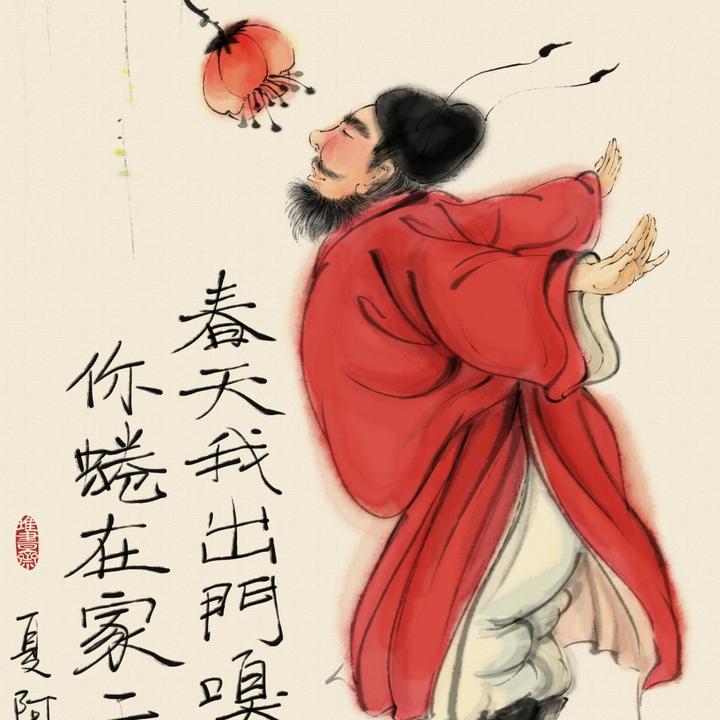 春天我出門嗅
你蜷在家二
夏阿